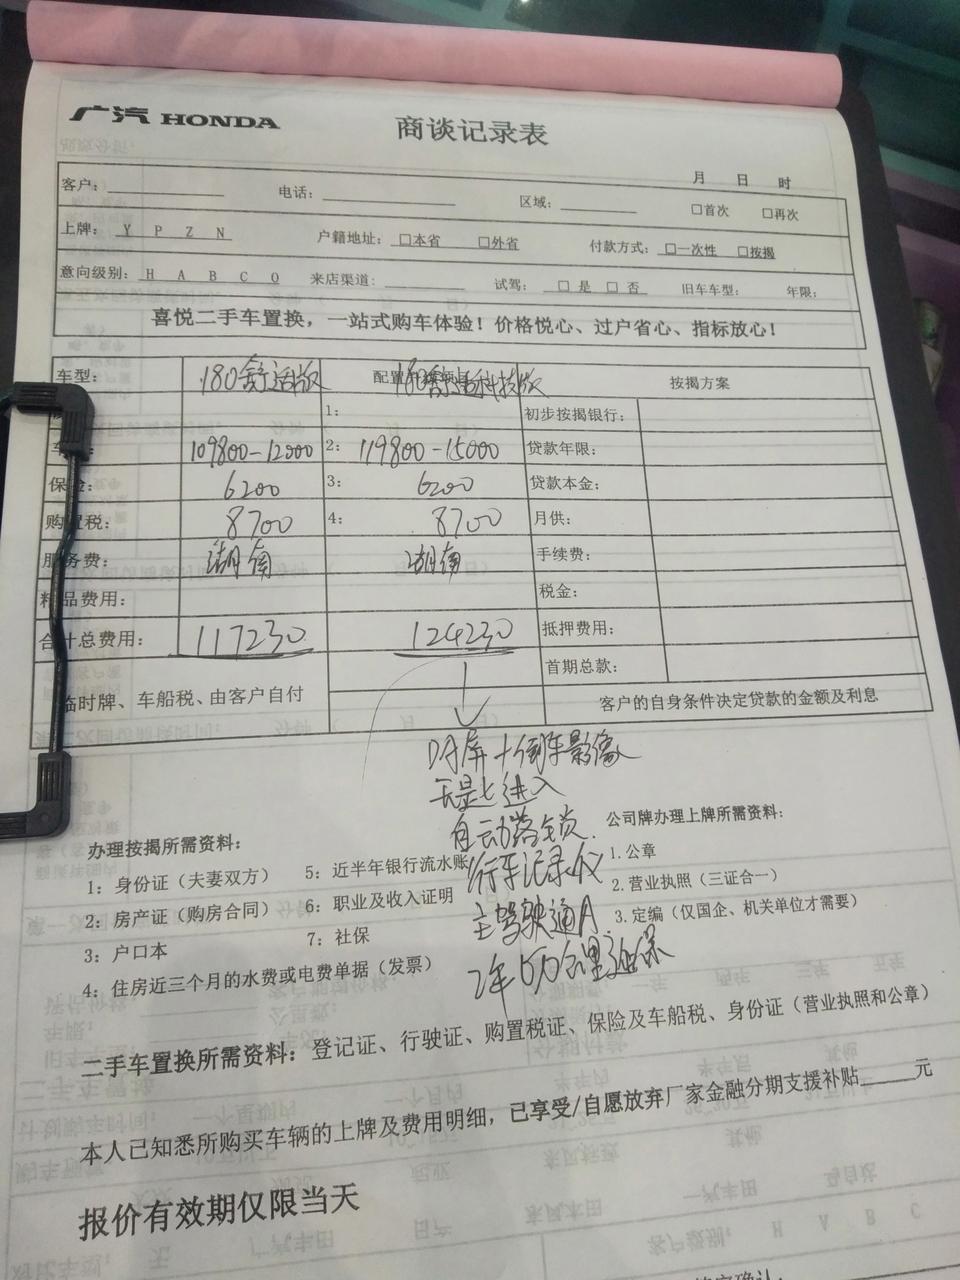 广汽 HONDA 商谈记录表
月 日 时
客户: 电话: 区域: □首次 □再次
上牌: Y P Z N 户籍地址: □本省 □外省 付款方式: □一次性 □按揭
意向级别: H A B C O 来店渠道: 试驾: □ 是 □ 否 旧车车型: 年限:
喜悦二手车置换，一站式购车体验！价格悦心、过户省心、指标放心！
车型: 180舒适版 180舒适科技版 按揭方案
1: 初步按揭银行:
109800-12000 2: 119800-15000 贷款年限:
保险: 6200 3: 6200 贷款本金:
购置税: 8700 4: 8700 月供:
服务费: 湖南 湖南 手续费:
精品费用: 税金:
合计总费用: 117230 124230 抵押费用:
首期总款:
临时牌、车船税、由客户自付 客户的自身条件决定贷款的金额及利息
屏+倒车影像
进入
自动落锁
行车记录仪
主驾驶通风
2年6万公里延保
办理按揭所需资料:
1: 身份证（夫妻双方） 5: 近半年银行流水账
2: 房产证（购房合同） 6: 职业及收入证明
3: 户口本 7: 社保
4: 住房近三个月的水费或电费单据（发票）
公司牌办理上牌所需资料:
1.公章
2.营业执照（三证合一）
3.定编（仅国企、机关单位才需要）
二手车置换所需资料: 登记证、行驶证、购置税证、保险及车船税、身份证（营业执照和公章）
本人已知悉所购买车辆的上牌及费用明细，已享受/自愿放弃厂家金融分期支援补贴______元
报价有效期仅限当天